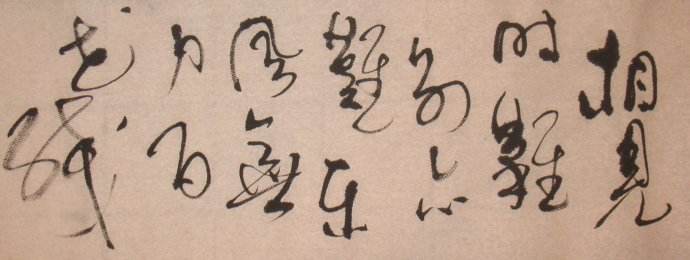 相見
時難
別亦
難東
風無
力百
花殘